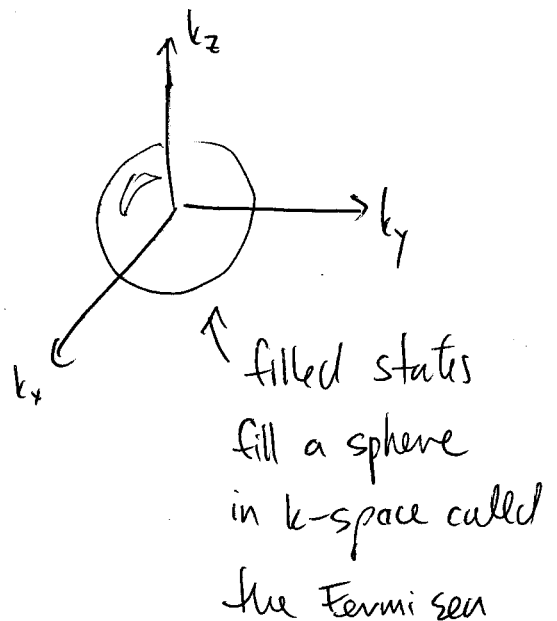 k_z
k_y
k_x
filled states
fill a sphere
in k-space called
the Fermi sea